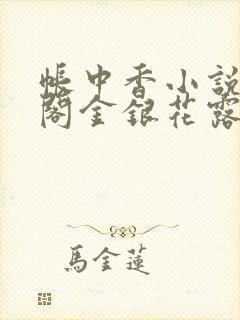 帳中香小說
閣金銀花露
馬金蓮